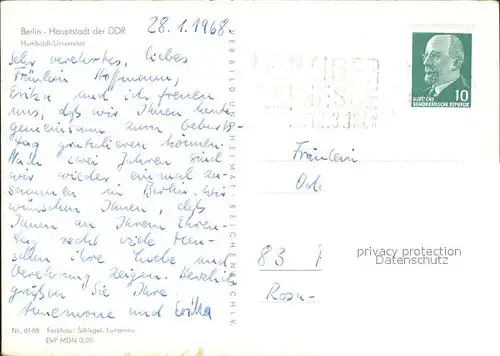 Berlin - Hauptstadt der DDR
Humboldt-Universität
28.1.1968
Sehr verehrtes, liebes
Fräulein Hoffmann,
Erika und ich freuen
uns, daß wir Ihnen heute
gemeinsam zum Geburts-
tag gratulieren können.
Nach zwei Jahren sind
wir wieder einmal zu-
sammen in Berlin. Wir
wünschen Ihnen, daß
Ihnen an Ihrem Ehren-
tag recht viele Men-
schen ihre Liebe und
Verehrung zeigen. Herzlich
grüßen Sie Ihre
Annemone und Erika
Nr. 6168 Farbfoto: Schlegel, Lunzenau
EVP MDN 0,20
VEB BILD UND HEIMAT REICHENBACH I. V.
10
DEUTSCHE
DEMOKRATISCHE REPUBLIK
Fräulein
83
Rosa-
privacy protection
watermark